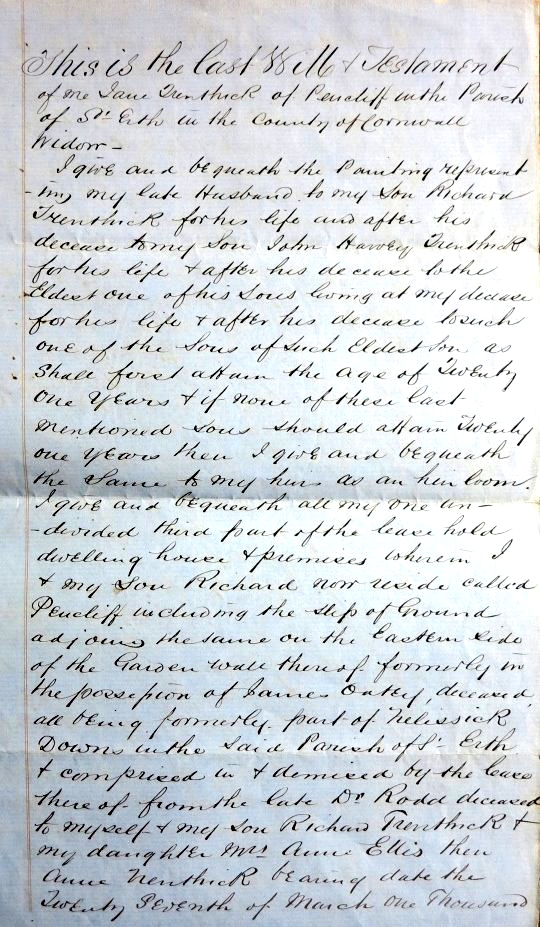 This is the last Will & Testament
of me Jane Trenthick of Pencliff in the Parish
of St. Erth in the County of Cornwall
Widow -
I give and bequeath the Painting represent-
-ing my late Husband to my Son Richard
Trenthick for his life and after his
decease to my Son John Harvey Trenthick
for his life & after his decease to the
Eldest one of his Sons living at my decease
for his life & after his decease to such
one of the Sons of such Eldest Son as
Shall first attain the age of Twenty
One Years & if none of these last
mentioned sons should attain Twenty
one Years then I give and bequeath
the Same to my heirs as an heir loom.
I give and bequeath all my one un-
-divided third part of the lease hold
dwelling house & premises wherein I
& my Son Richard now reside called
Pencliff including the slip of Ground
adjoining the same on the Eastern side
of the Garden wall thereof formerly in
the possession of James Oatey, deceased,
all being formerly part of Trelissick
Downs in the said Parish of St. Erth
& comprised in & demised by the lease
thereof from the late Dr Rodd deceased
to myself & my son Richard Trenthick &
my daughter Mrs Anne Ellis then
Anne Trenthick bearing date the
Twenty Seventh of March One Thousand